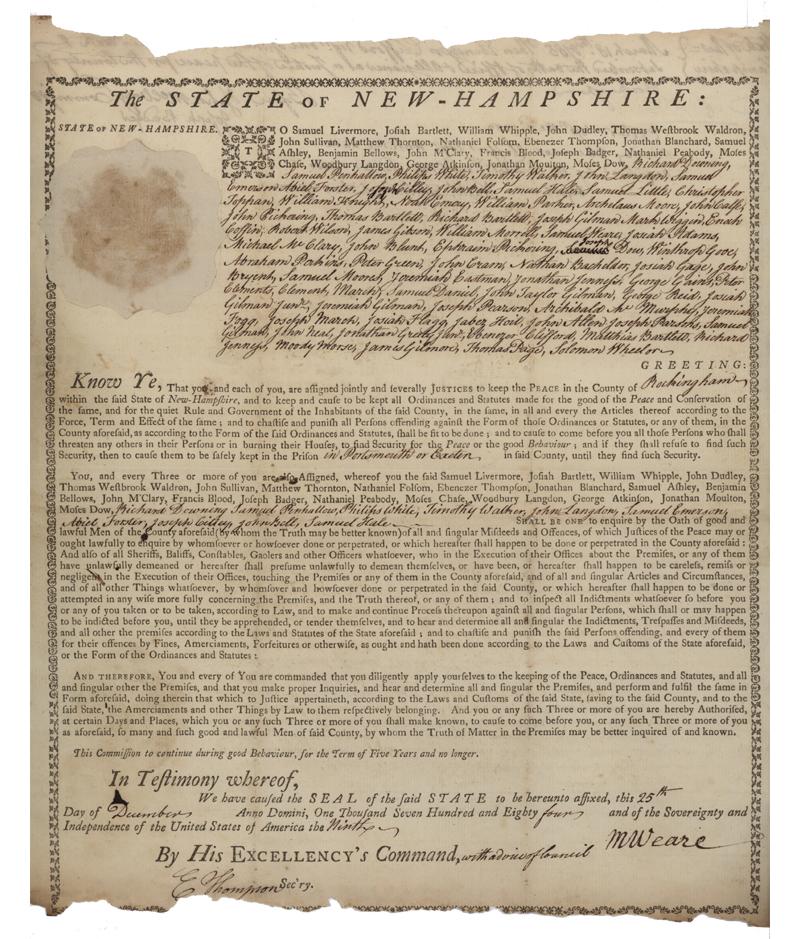 The STATE OF NEW-HAMPSHIRE:
STATE OF NEW-HAMPSHIRE.
TO Samuel Livermore, Josiah Bartlett, William Whipple, John Dudley, Thomas Westbrook Waldron,
John Sullivan, Matthew Thornton, Nathaniel Folsom, Ebenezer Thompson, Jonathan Blanchard, Samuel
Ashley, Benjamin Bellows, John M'Clary, Francis Blood, Joseph Badger, Nathaniel Peabody, Moses
Chase, Woodbury Langdon, George Atkinson, Jonathan Moulton, Moses Dow, Richard Downing,
Samuel Penhallow, Philips White, Timothy Walker, John Langdon, Samuel
Emerson Abiel Forster, Joseph Cilley, John Bell, Samuel Hale, Samuel Little, Christopher
Toppan, William Knight, Noah Emery, William Parker, Archelaus Moore, John Calfe,
John Pickering, Thomas Bartlett, Richard Bartlett, Joseph Gilman Mark Wiggin, Enoch
Coffin, Robert Wilson, James Gibson, William Morrill, Samuel Weare, Josiah Adams,
Michael Mc Clary, John Blunt, Ephraim Pickering, Joseph Dow, Winthrop Gove,
Abraham Perkins, Peter Green, John Cram, Nathan Batchelder, Josiah Gage, John
Bryent, Samuel Moores, Jeremiah Eastman, Jonathan Jenness, George Gains, Peter
Clements, Clement March, Samuel Daniel, John Taylor Gilman, George Reid, Josiah
Gilman Junr., Jeremiah Gilman, Joseph Pearson, Archebald Mc Murphy, Jeremiah
Fogg, Joseph March, Josiah Flagg, Jabez Hoit, John Allen Joseph Parsons, Samuel
Gilman, John Neal, Jonathan Greely Jun., Ebenezer Clifford, Matthias Bartlett, Richard
Jenness, Moody Morse, James Gilmore, Thomas Page, Solomon Wheeler
GREETING:
Know Ye, That you and each of you, are assigned jointly and severally JUSTICES to keep the PEACE in the County of Rockingham
within the said State of New-Hampshire, and to keep and cause to be kept all Ordinances and Statutes made for the good of the Peace and Conservation of
the same, and for the quiet Rule and Government of the Inhabitants of the said County, in the same, in all and every the Articles thereof according to the
Force, Term and Effect of the same; and to chastise and punish all Persons offending against the Form of those Ordinances or Statutes, or any of them, in the
County aforesaid, as according to the Form of the said Ordinances and Statutes, shall be fit to be done; and to cause to come before you all those Persons who shall
threaten any others in their Persons or in burning their Houses, to find Security for the Peace or the good Behaviour; and if they shall refuse to find such
Security, then to cause them to be safely kept in the Prison in Portsmouth or Exeter in said County, until they find such Security.
You, and every Three or more of you are also Assigned, whereof you the said Samuel Livermore, Josiah Bartlett, William Whipple, John Dudley,
Thomas Westbrook Waldron, John Sullivan, Matthew Thornton, Nathaniel Folsom, Ebenezer Thompson, Jonathan Blanchard, Samuel Ashley, Benjamin
Bellows, John M'Clary, Francis Blood, Joseph Badger, Nathaniel Peabody, Moses Chase, Woodbury Langdon, George Atkinson, Jonathan Moulton,
Moses Dow, Richard Downing Samuel Penhallow, Philips White, Timothy Walker, John Langdon, Samuel Emerson,
Abiel Forster, Joseph Cilley, John Bell, Samuel Hale SHALL BE ONE to enquire by the Oath of good and
lawful Men of the County aforesaid (by whom the Truth may be better known) of all and singular Misdeeds and Offences, of which Justices of the Peace may or
ought lawfully to enquire by whomsoever or howsoever done or perpetrated, or which hereafter shall happen to be done or perpetrated in the County aforesaid:
And also of all Sheriffs, Bailiffs, Constables, Gaolers and other Officers whatsoever, who in the Execution of their Offices about the Premises, or any of them
have unlawfully demeaned or hereafter shall presume unlawfully to demean themselves, or have been, or hereafter shall happen to be careless, remiss or
negligent in the Execution of their Offices, touching the Premises or any of them in the County aforesaid, and of all and singular Articles and Circumstances,
and of all other Things whatsoever, by whomsover and howsoever done or perpetrated in the said County, or which hereafter shall happen to be done or
attempted in any wise more fully concerning the Premises, and the Truth thereof, or any of them; and to inspect all Indictments whatsoever so before you
or any of you taken or to be taken, according to Law, and to make and continue Process thereupon against all and singular Persons, which shall or may happen
to be indicted before you, until they be apprehended, or tender themselves, and to hear and determine all and singular the Indictments, Trespasses and Misdeeds,
and all other the premises according to the Laws and Statutes of the State aforesaid; and to chastise and punish the said Persons offending, and every of them
for their offences by Fines, Amerciaments, Forfeitures or otherwise, as ought and hath been done according to the Laws and Customs of the State aforesaid,
or the Form of the Ordinances and Statutes:
AND THEREFORE, You and every of You are commanded that you diligently apply yourselves to the keeping of the Peace, Ordinances and Statutes, and all
and singular other the Premises, and that you make proper Inquiries, and hear and determine all and singular the Premises, and perform and fulfil the same in
Form aforesaid, doing therein that which to Justice appertaineth, according to the Laws and Customs of the said State, saving to the said County, and to the
said State, the Amerciaments and other Things by Law to them respectively belonging. And you or any such Three or more of you are hereby Authorised,
at certain Days and Places, which you or any such Three or more of you shall make known, to cause to come before you, or any such Three or more of you
as aforesaid, so many and such good and lawful Men of said County, by whom the Truth of Matter in the Premises may be better inquired of and known.
This Commission to continue during good Behaviour, for the Term of Five Years and no longer.
In Testimony whereof,
We have caused the SEAL of the said STATE to be hereunto affixed, this 25th
Day of December Anno Domini, One Thousand Seven Hundred and Eighty four and of the Sovereignty and
Independence of the United States of America the Ninth
MWeare
By His EXCELLENCY'S Command, with advice of Council
E Thompson Sec'ry.